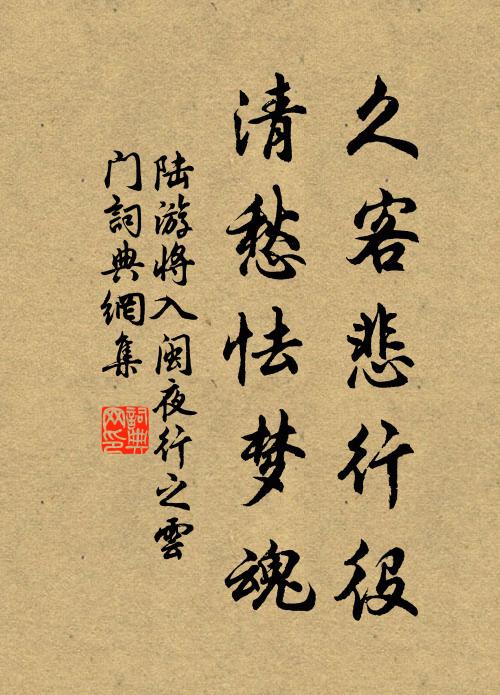 久客悲行役
清愁怯梦魂
陆游将入闽夜行之雲
门詞典網集
詞典网印